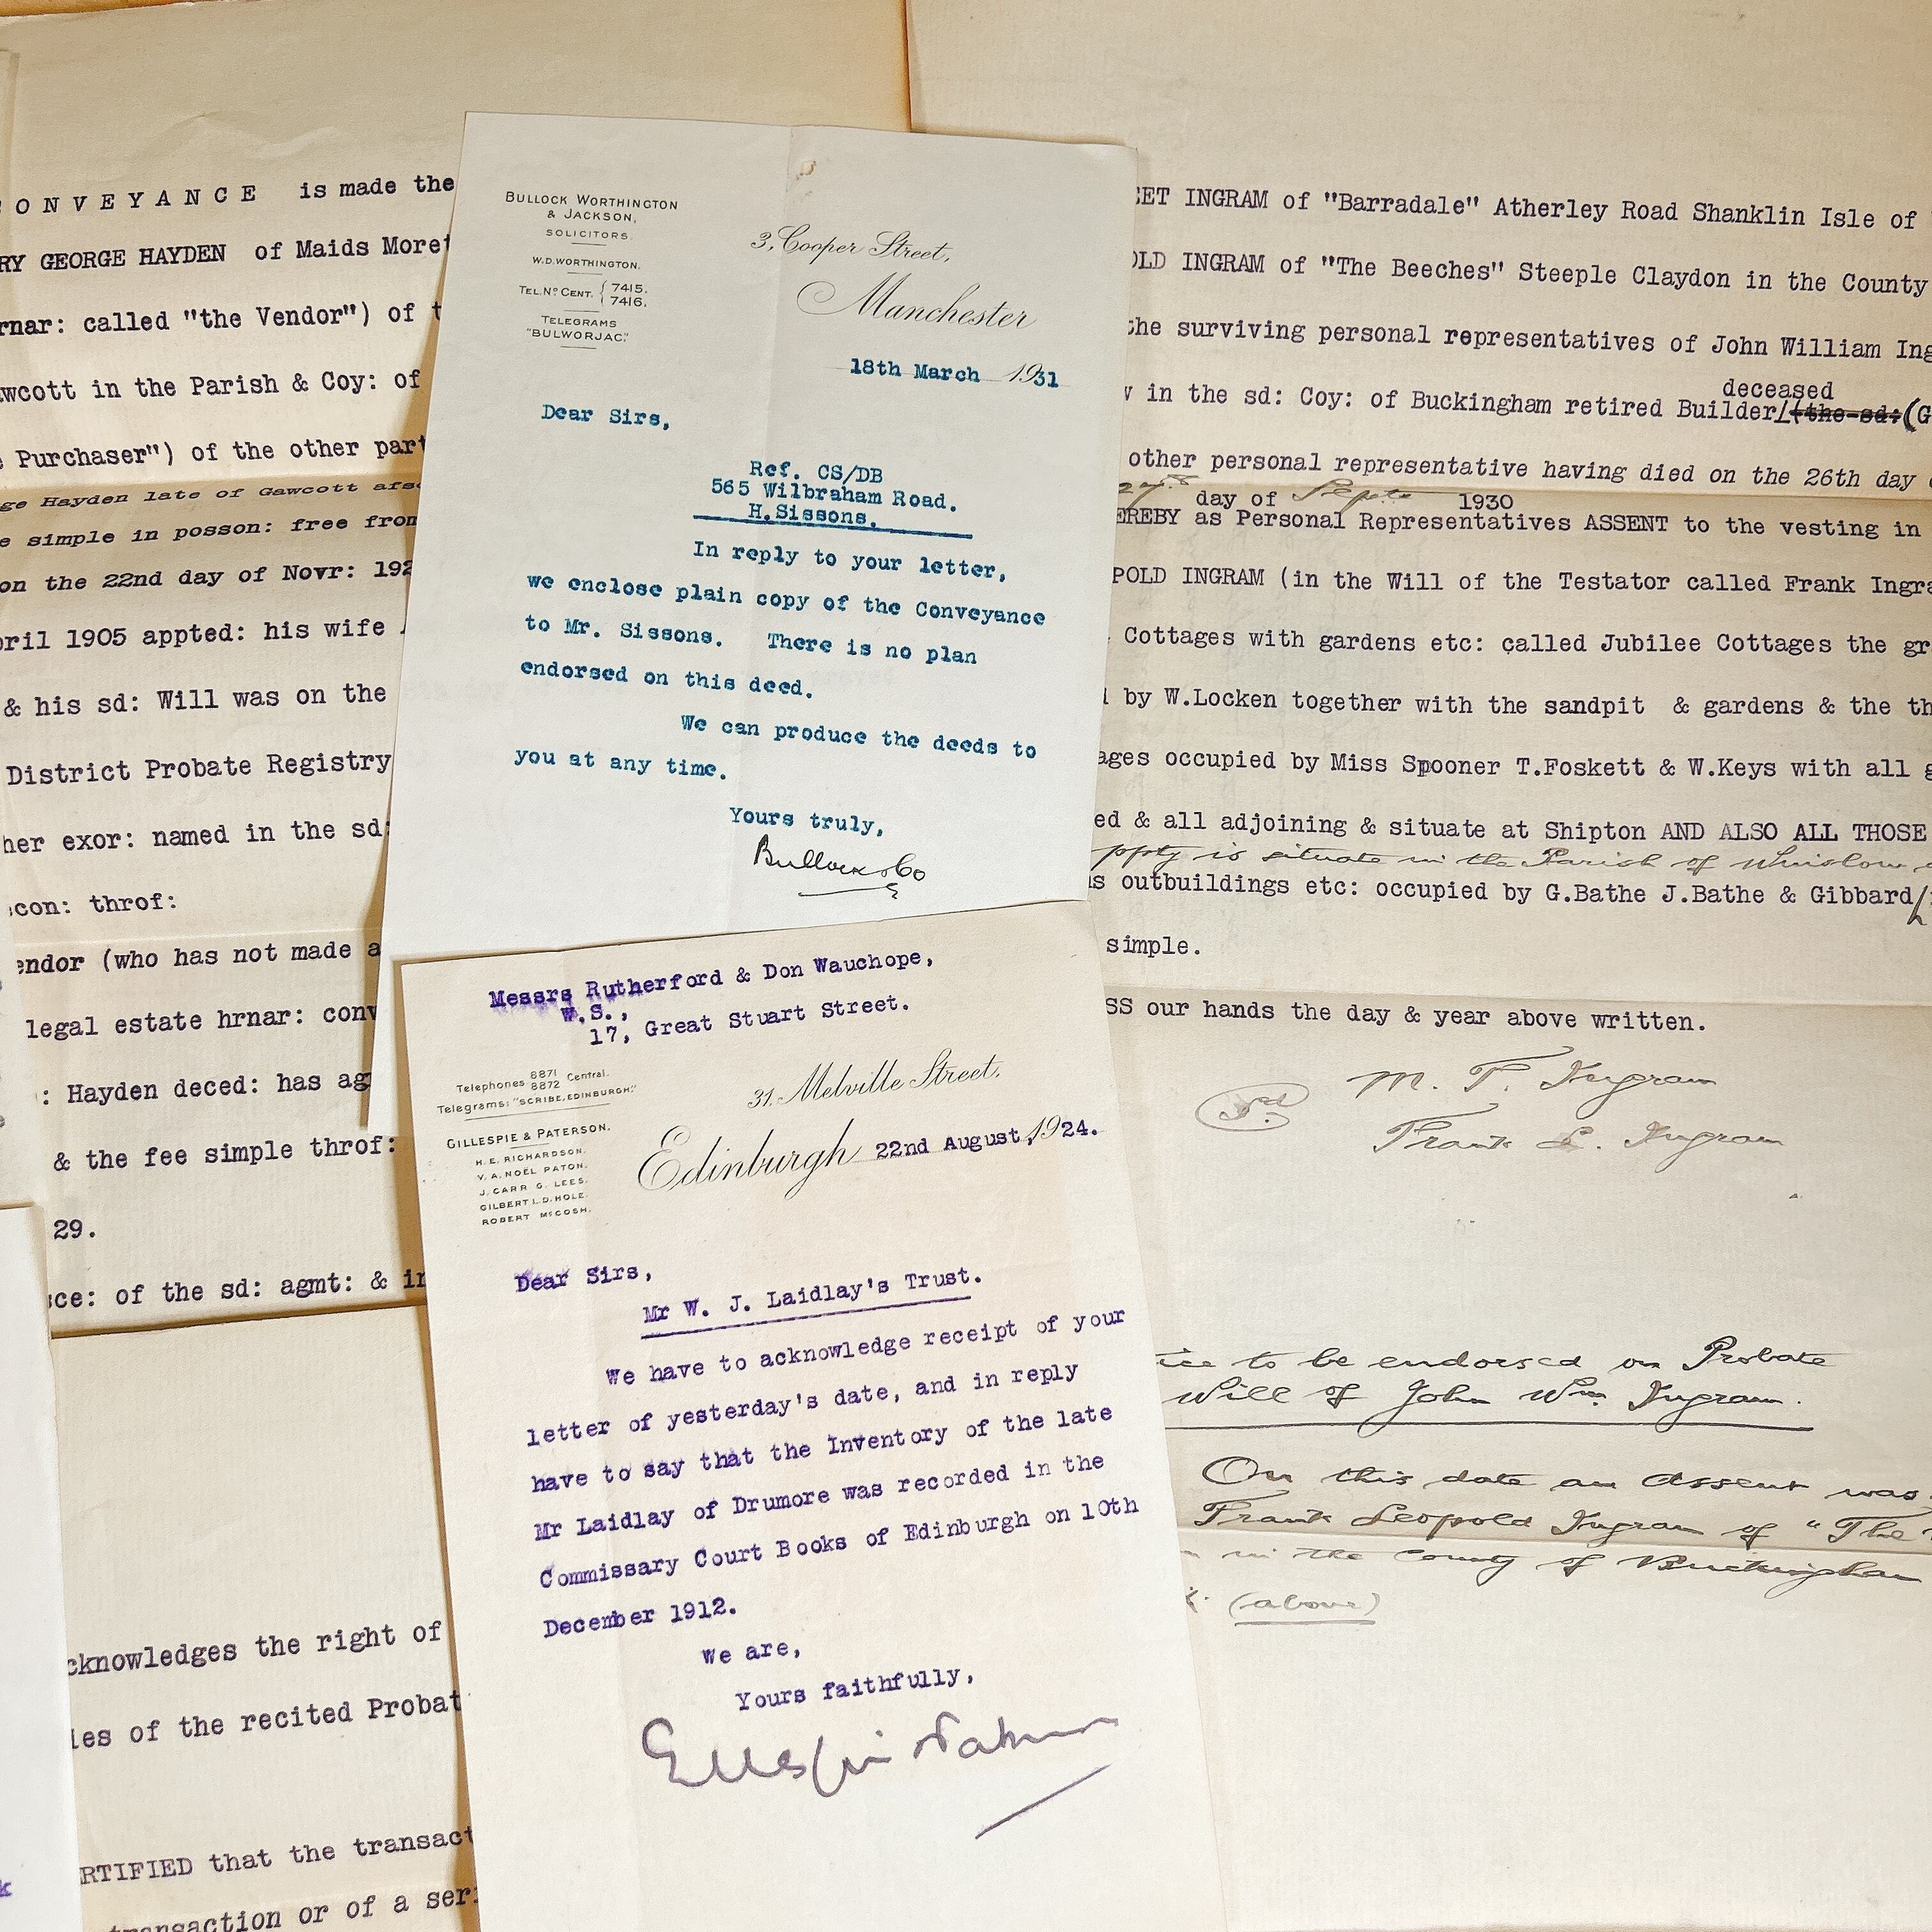 CONVEYANCE is made the
RY GEORGE HAYDEN of Maids Moret
rnar: called "the Vendor") of t
wcott in the Parish & Coy: of
Purchaser") of the other part
ge Hayden late of Gawcott afsd
e simple in posson: free from
on the 22nd day of Novr: 192
pril 1905 appted: his wife
& his sd: Will was on the
District Probate Registry
her exor: named in the sd:
con: throf:
endor (who has not made a
legal estate hrnar: conv
: Hayden deced: has ag
& the fee simple throf:
29.
ce: of the sd: agmt: & in
cknowledges the right of
ies of the recited Probat
RTIFIED that the transact
transaction or of a seri
k
BULLOCK WORTHINGTON
& JACKSON,
SOLICITORS.
W.D.WORTHINGTON.
TEL. Nº CENT. { 7415.
7416.
TELEGRAMS
"BULWORJAC."
3, Cooper Street,
Manchester
18th March 1931
Dear Sirs,
Ref. CS/DB
565 Wilbraham Road.
H.Sissons.
In reply to your letter,
we enclose plain copy of the Conveyance
to Mr. Sissons. There is no plan
endorsed on this deed.
We can produce the deeds to
you at any time.
Yours truly,
Bullock & Co
Messrs Rutherford & Don Wauchope,
W.S.,
17, Great Stuart Street.
Telephones 8871
8872 Central.
Telegrams: "SCRIBE, EDINBURGH."
GILLESPIE & PATERSON.
H. E. RICHARDSON.
V. A. NOËL PATON.
J. CARR G. LEES.
GILBERT L.D. HOLE.
ROBERT McCOSH.
31, Melville Street,
Edinburgh 22nd August, 1924.
Dear Sirs,
Mr W. J. Laidlay's Trust.
We have to acknowledge receipt of your
letter of yesterday's date, and in reply
have to say that the Inventory of the late
Mr Laidlay of Drumore was recorded in the
Commissary Court Books of Edinburgh on 10th
December 1912.
We are,
Yours faithfully,
Gillespie & Paterson
ET INGRAM of "Barradale" Atherley Road Shanklin Isle of
OLD INGRAM of "The Beeches" Steeple Claydon in the County
the surviving personal representatives of John William Ing
deceased
w in the sd: Coy: of Buckingham retired Builder/(the sd: (G
other personal representative having died on the 26th day
day of Septr 1930
EREBY as Personal Representatives ASSENT to the vesting in
POLD INGRAM (in the Will of the Testator called Frank Ingra
Cottages with gardens etc: called Jubilee Cottages the gr
by W.Locken together with the sandpit & gardens & the th
ages occupied by Miss Spooner T.Foskett & W.Keys with all g
ed & all adjoining & situate at Shipton AND ALSO ALL THOSE
ppty is situate in the Parish of Winslow
s outbuildings etc: occupied by G.Bathe J.Bathe & Gibbard/
simple.
SS our hands the day & year above written.
M. T. Ingram
Frank L. Ingram
ice to be endorsed on Probate
Will of John Wm. Ingram.
On this date an Assent was
Frank Leopold Ingram of "The
in the County of Buckingham
(above)